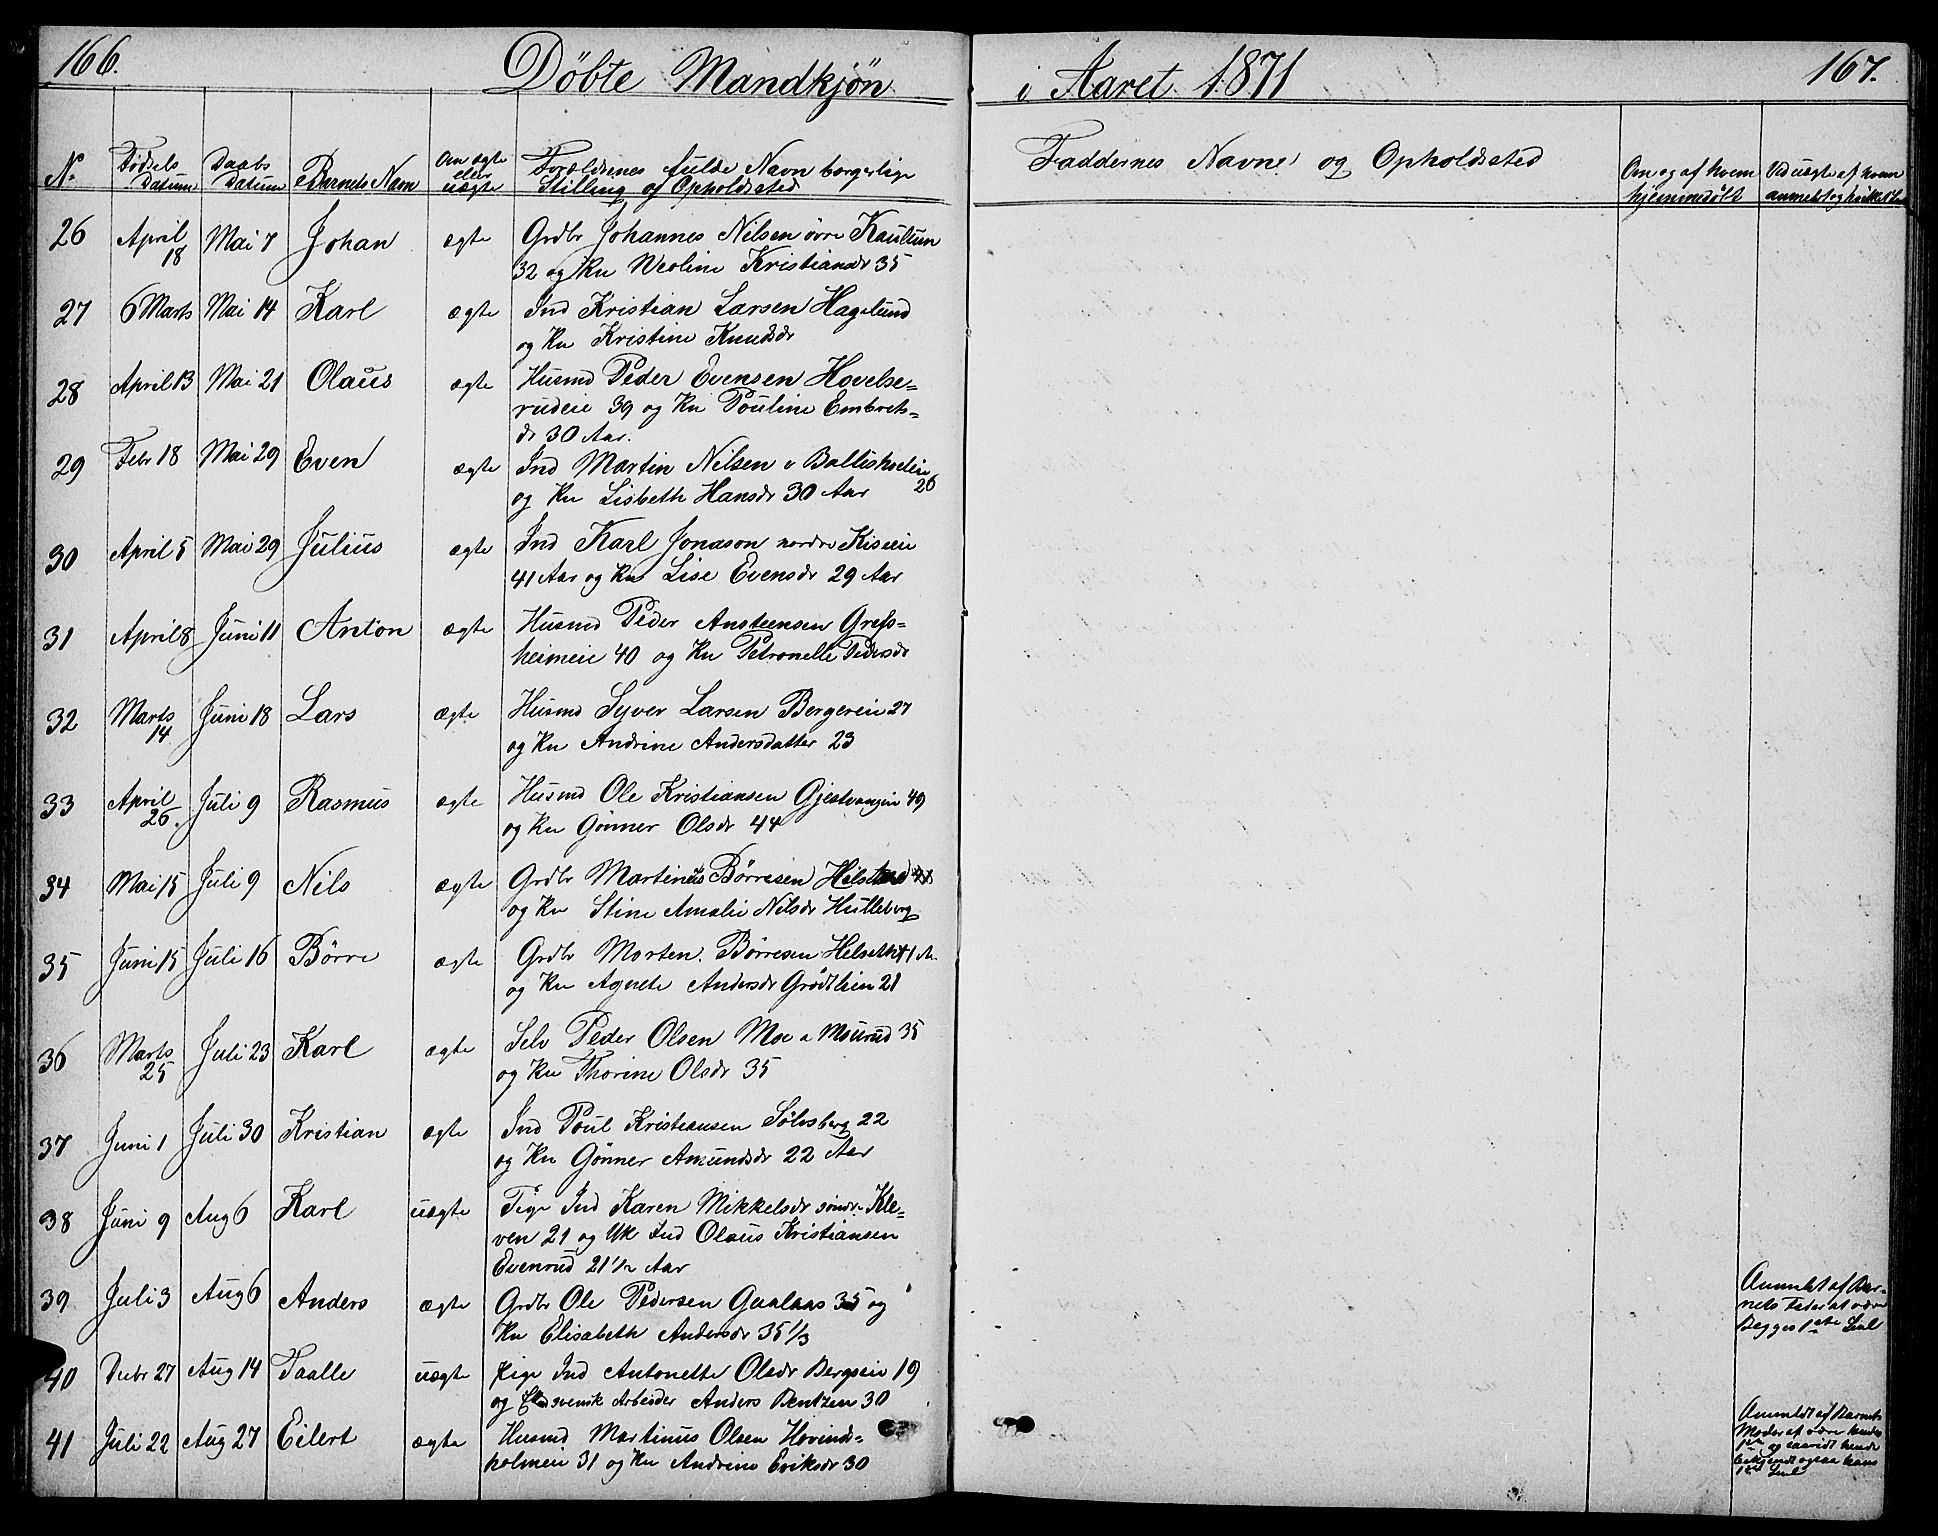 166.
Döbte Mandkjön
i Aaret 1871
167.
No
Födsels Datum
Daabs Datum
Barnets Navn
Om ægte eler uægte
Forældrenes fulde Navn borgerlige
Stilling og Opholdssted
Faddernes Navne og Opholdssted
Om og af hvem
hjemmedöbt
Ved uægte af hvem
anmeldt og hvilket
26 April 18 Mai 7 Johan ægte Grdbr Johannes Nilsen övre Kaulum
32 og Kn Weoline Kristiansdr 35
27 6 Marts Mai 14 Karl ægte Ind Kristian Larsen Hagelund
og Kn Kristine Knudsdr
28 April 13 Mai 21 Olaus ægte Husmd Peder Evensen Hovelse-
rudeie 39 og Kn Pouline Embrets-
dr 30 Aar.
29 Febr 18 Mai 29 Even ægte Ind Martin Nilsen v Ballishodeie 26
og Kn Lisbeth Hansdr 30 Aar
30 April 5 Mai 29 Julius ægte Ind Karl Jonason nordre Kiseeie
41 Aar og Kn Lise Evensdr 29 Aar
31 April 8 Juni 11 Anton ægte Husmd Peder Ansteensen Grefs-
heimeie 40 og Kn Petronelle Pedersdr
32 Marts 14 Juni 18 Lars ægte Husmd Syver Larsen Bergereie 27
og Kn Andrine Andersdatter 23
33 April 26. Juli 9 Rasmus ægte Husmd Ole Kristiansen Gjestvangeie 49
og Kn Gönner Olsdr 44
34 Mai 15 Juli 9 Nils ægte Grdbr Martinus Börresen Helstad
og Kn Stine Amalie Nilsdr Hulleberg
35 Juni 15 Juli 16 Börre ægte Grdbr Morten Börresen Helseth 41 A.
og Kn Agnete Andersdr Grödtlien 21
36 Marts 25 Juli 23 Karl ægte Selv Peder Olsen Moe a Mourud 35
og Kn Thorine Olsdr 35
37 Juni 1 Juli 30 Kristian ægte Ind Poul Kristiansen Sölvsberg 22
og Kn Gönner Amundsdr 22 Aar
38 Juni 9 Aug 6 Karl uægte Pige Ind Karen Mikkelsdr söndr. Kle-
ven 21 og Uk Ind Olaus Kristiansen
Evenrud 21 1/2 Aar
39 Juli 3 Aug 6 Anders ægte Grdbr Ole Pedersen Gaalaas 35 og
Kn Elisabeth Andersdr 35 1/3
40 Debr 27 Aug 14 Taalle uægte Pige Ind Antonette Olsdr Bergseie 19
og svensk Arbeider Anders Bentzen 30
41 Juli 22 Aug 27 Eilert ægte Husmd Martinus Olsen Hovinds-
holmeie 31 og Kn Andrine Eriksdr 30
Anmeldt af Bar-
nets Fader at være
Begges 1ste Leiel
Anmeldt af Barnets
Moder at være hendes
1ste og saavidt hende
bekjendt ogsaa hans
1ste Leiel